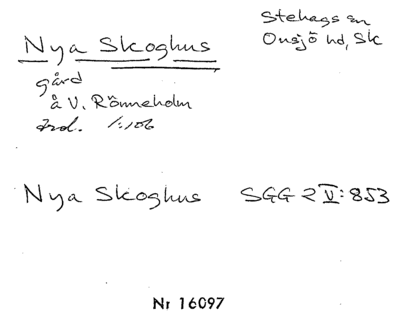 Nya Skoghus
Stehags sn
Onsjö hd, Sk
gård
å V. Rönneholm
Jrd. 1:106
Nya Skoghus SGG 2 V:853
Nr 16097